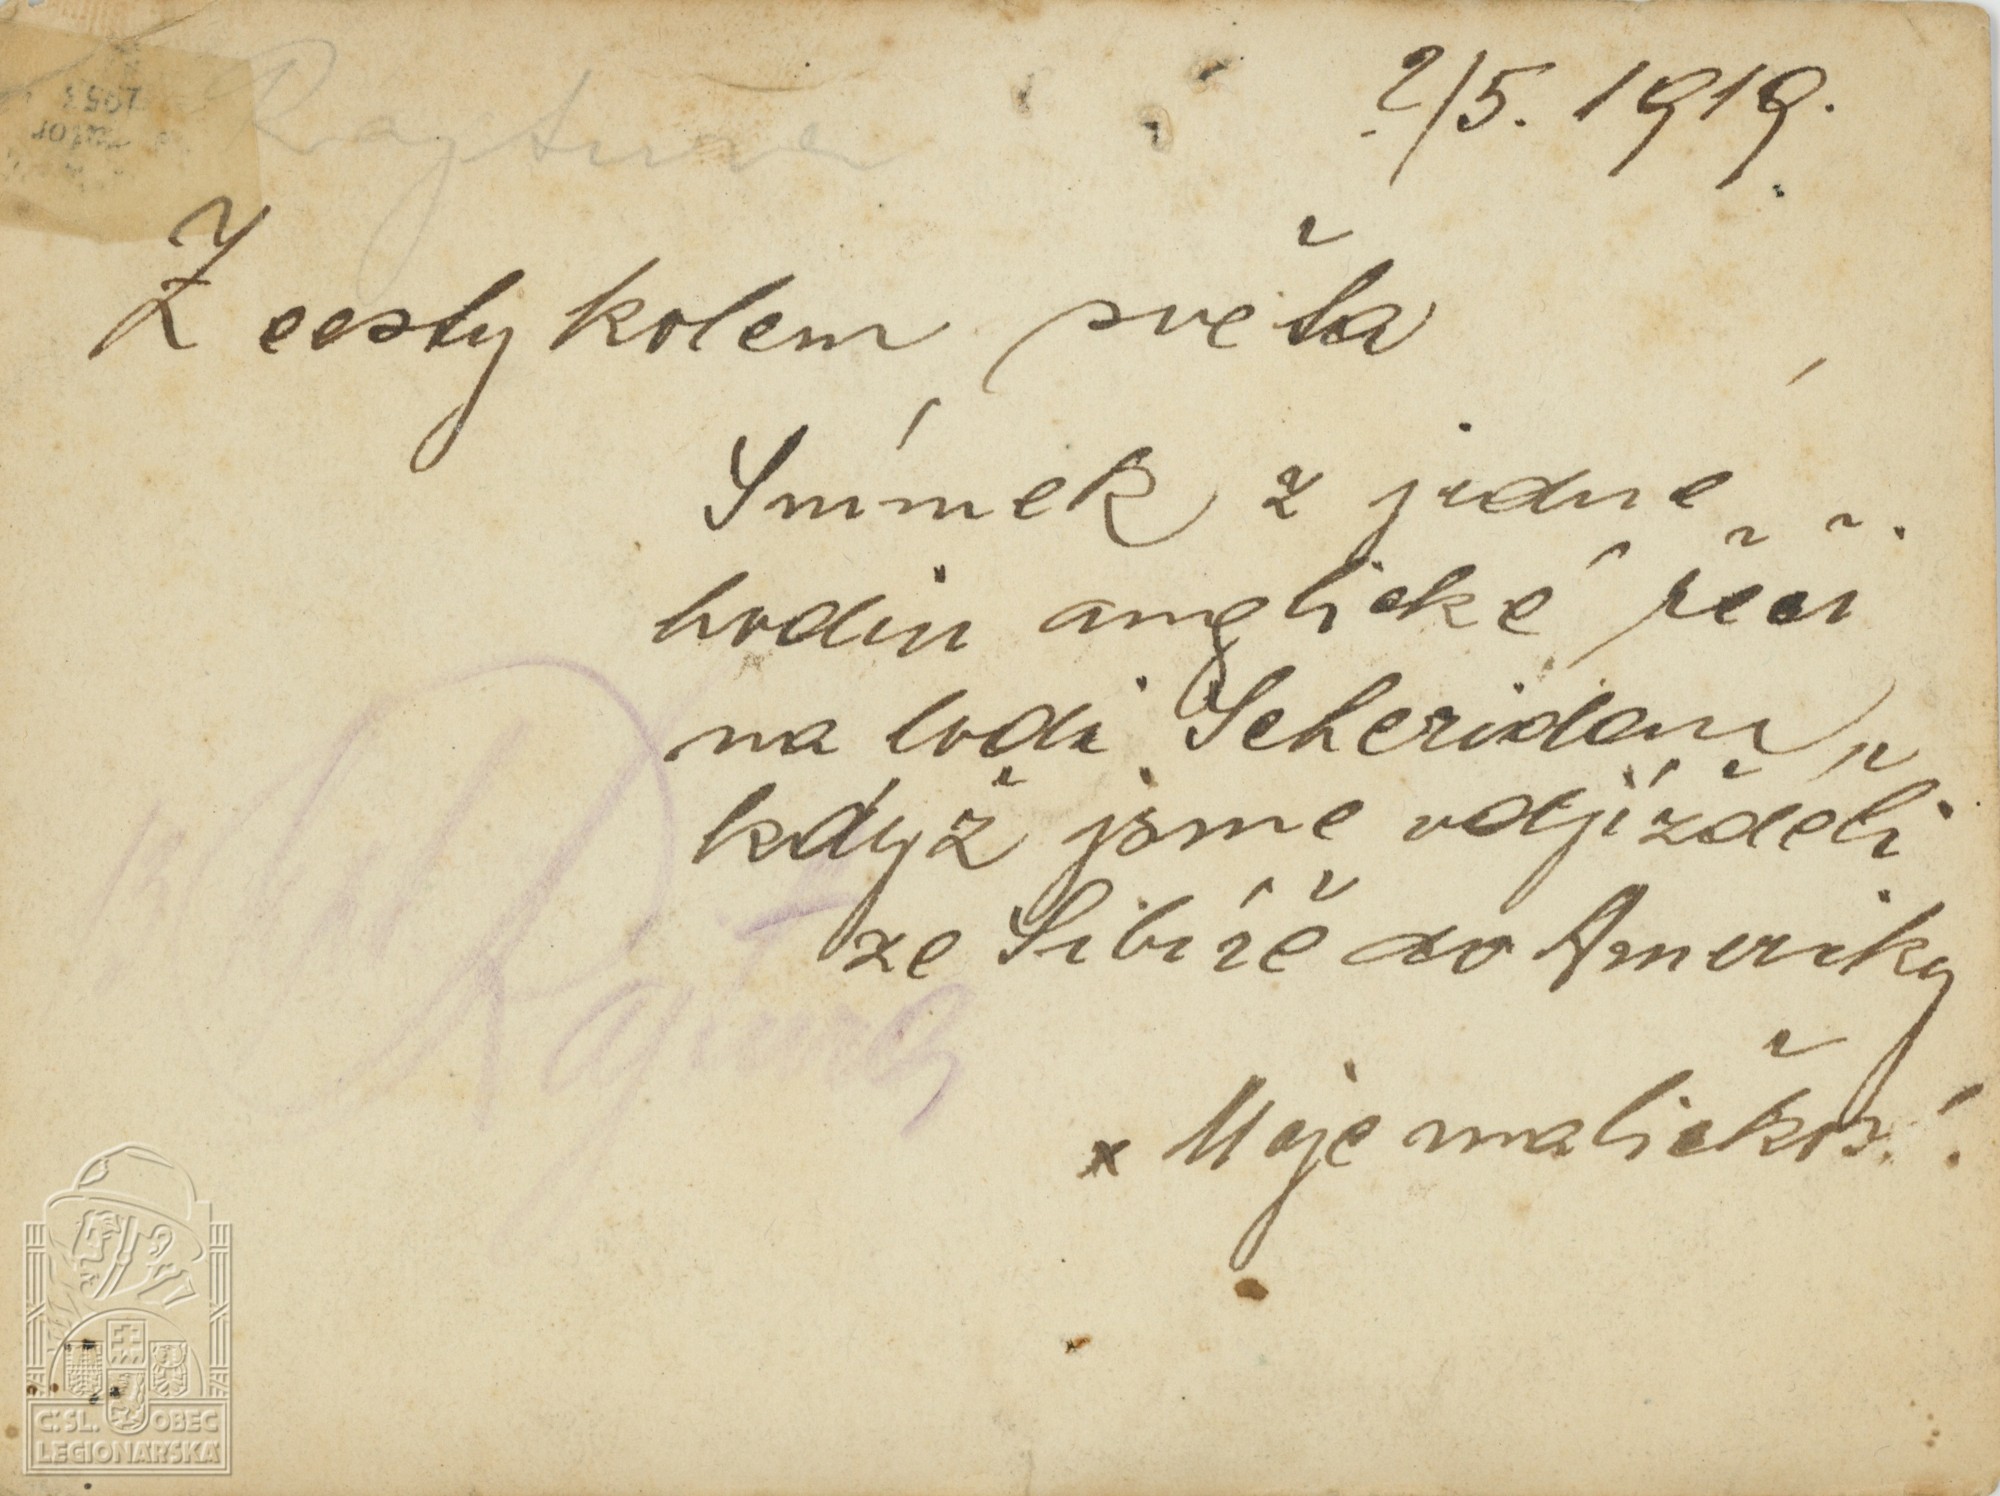 2/5. 1919.
Z cesty kolem světa
Snímek z jedné
hodin anglické řeči
na lodi „Scheridan“
když jsme odjížděli
ze Sibíře do Ameriky
x Moje maličkos.
Rajtura
1953
Č.SL. OBEC
LEGIONÁŘSKÁ